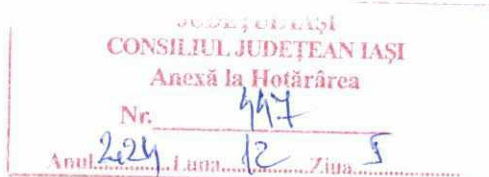 JUDEȚUL IAȘI
CONSILIUL JUDEȚEAN IAȘI
Anexă la Hotărârea
Nr. 447
Anul 2024 Luna 12 Ziua 5